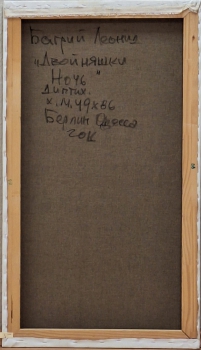 Багрий Леонид
„Двойняшки
Ночь"
Диптих.
х.м. 49х86
Берлин Одесса